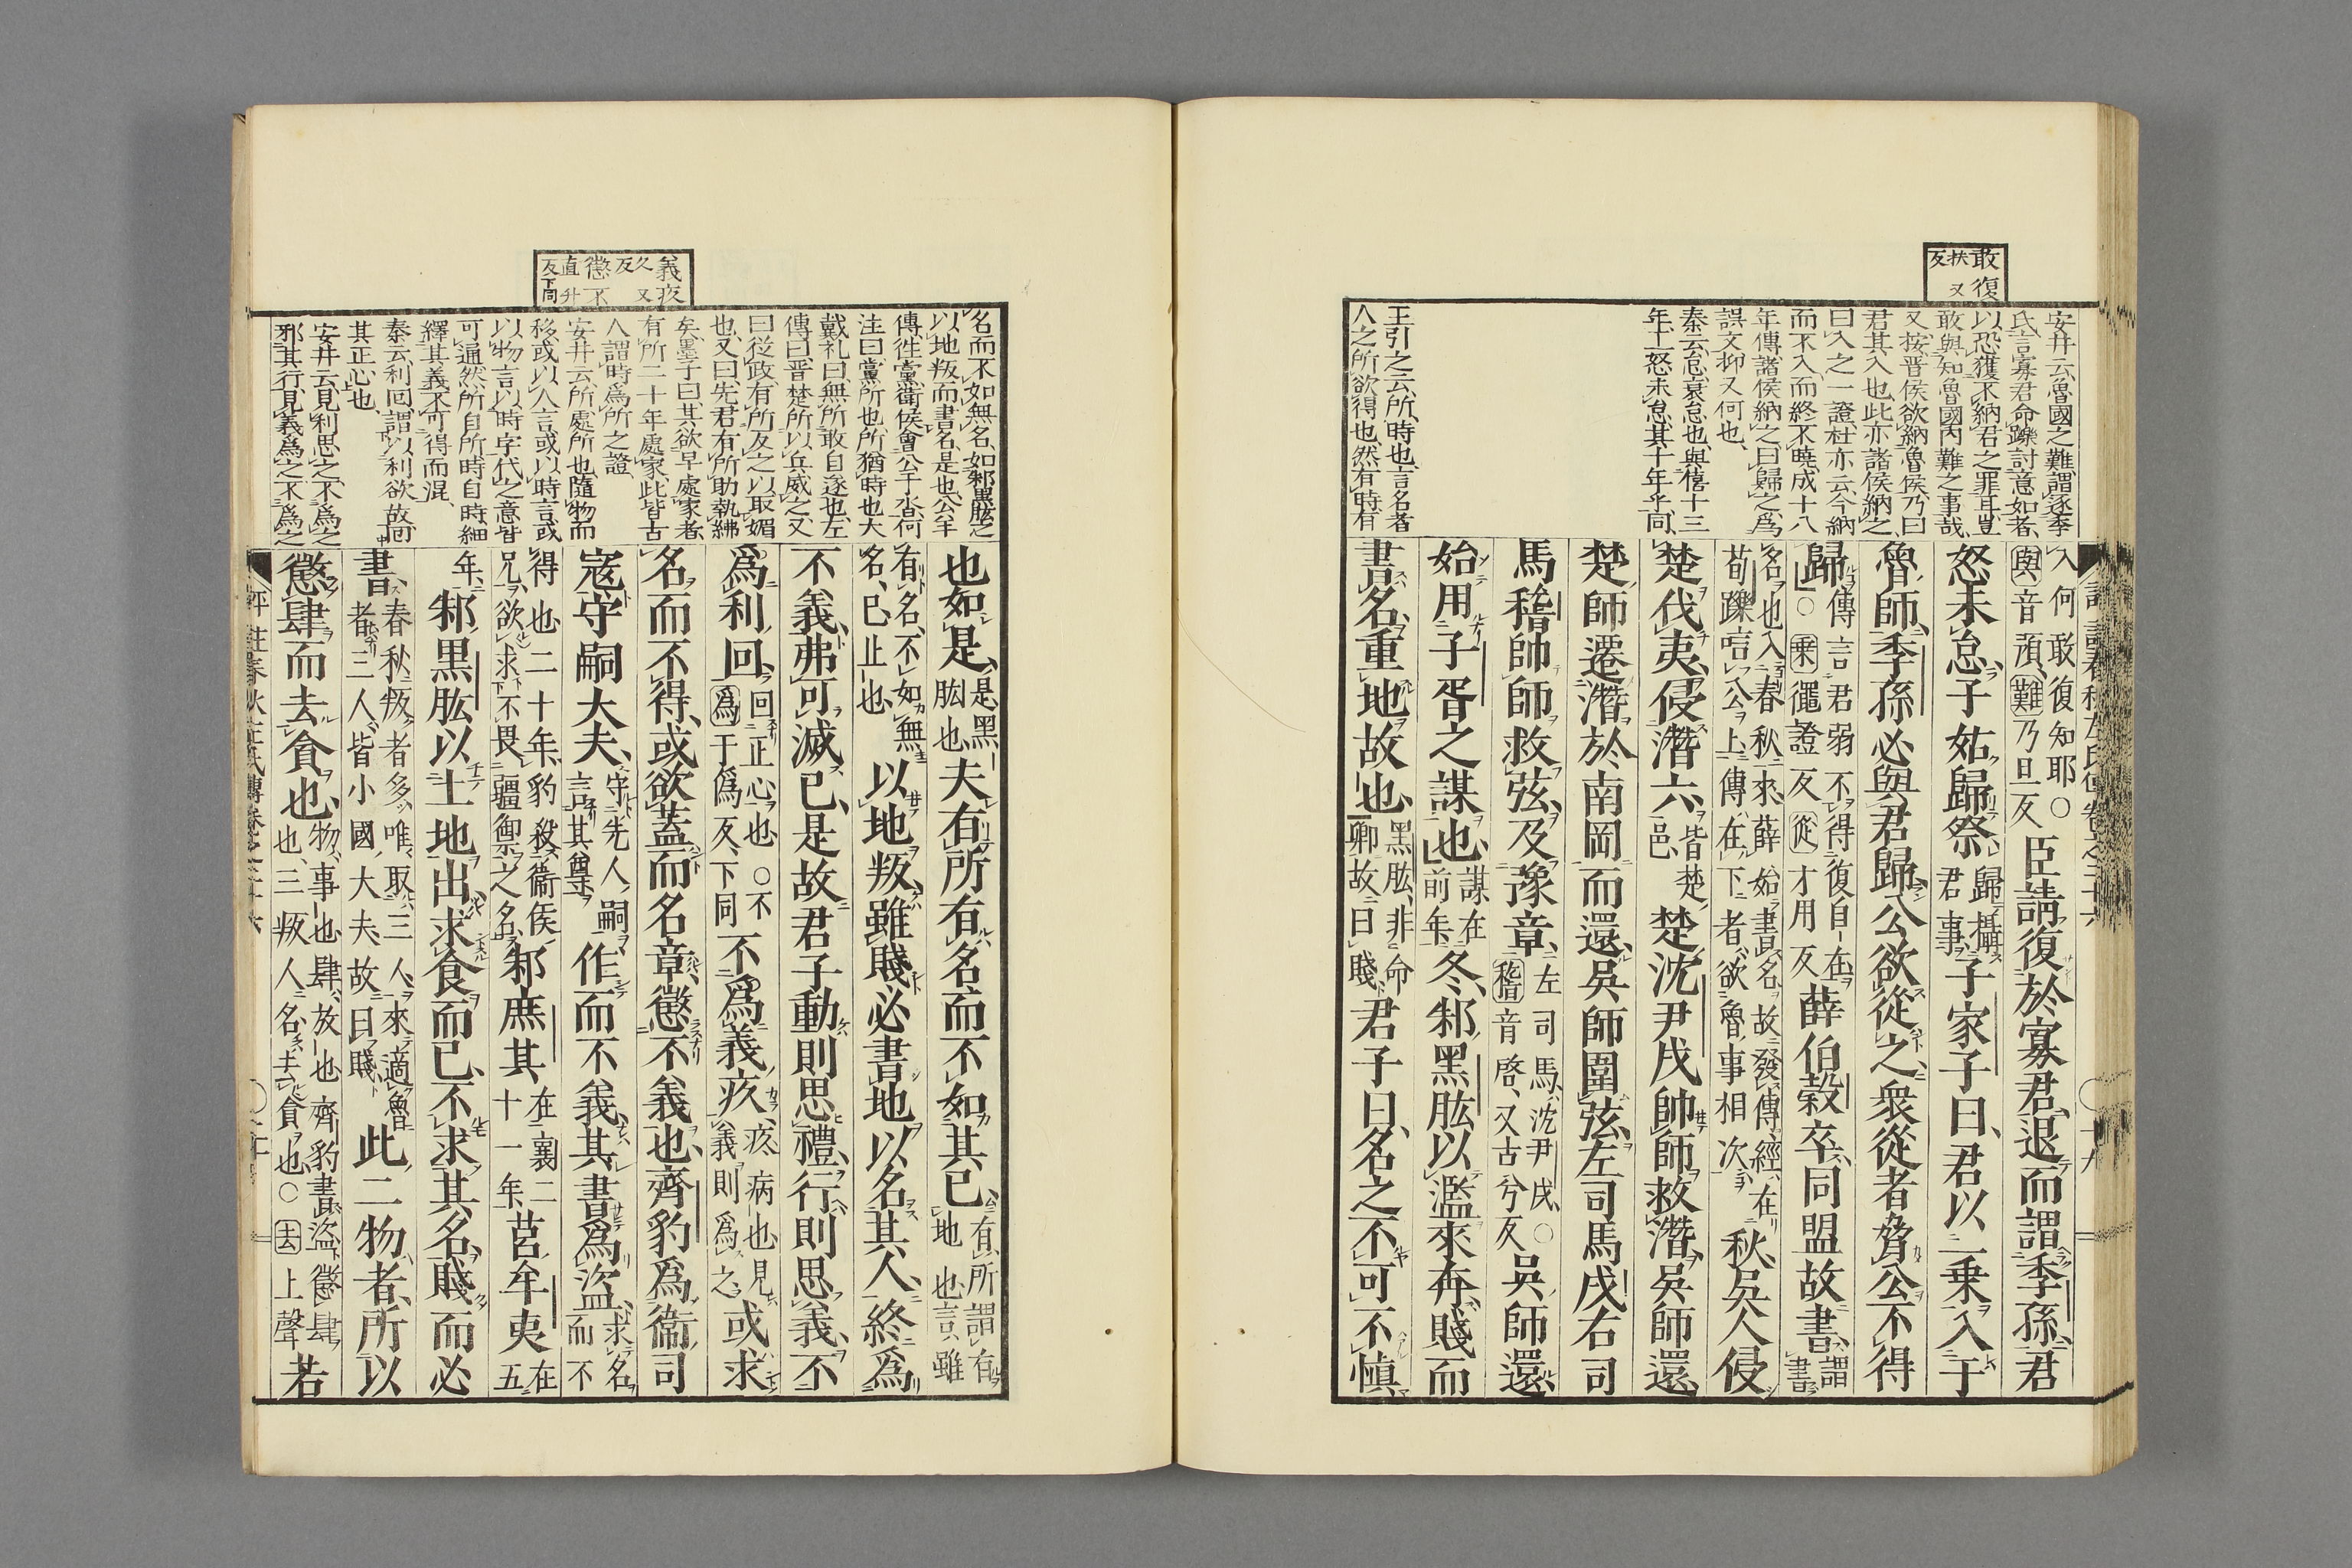 敢復
扶又
反
安井云魯國之難謂逐季
氏言寡君命躒討意如者
以恐獲不納君之罪耳豈
敢與知魯國內難之事哉
又按晋侯欲納魯侯乃曰
君其入也此亦諸侯納之
曰入之一證杜亦云今納
而不入而終不曉成十八
年傳諸侯納之曰歸之爲
誤文抑又何也
秦云怠衰怠也與僖十三
年王怒未怠其十年乎同
王引之云所時也言名者
人之所欲得也然有時有
入何敢復知耶○與音預難乃旦反臣請復於寡君退而謂季孫君
怒未怠子姑歸祭歸攝君事子家子曰君以一乗入于
魯師季孫必與君歸公欲從之衆從者脅公不得
歸傳言君弱不得復自在○乗繩證反從才用反薛伯榖卒同盟故書謂書
名也入春秋來薛始書名故發傳經在荀躒唁公上傳在下者欲魯事相次秋吳人侵
楚伐夷侵潛六皆楚邑楚沈尹戌帥師救潛吳師還
楚師遷潛於南岡而還吳師圍弦左司馬戌右司
馬稽帥師救弦及豫章左司馬沈尹戌○稽音啓又古兮反吳師還
始用子胥之謀也謀在前年冬邾黑肱以濫來奔賤而
書名重地故也黑肱非命卿故曰賤君子曰名之不可不慎
義疚
久又
反
懲不
直升
反下同
名而不如無名如邾黑肱之
以地叛而書名是也公羊
傳徃黨衛侯會公于沓何
注曰黨所也所猶時也大
戴礼曰無所敢自遂也左
傳曰晋楚所以兵威之又
曰從政有所反之以取媚
也又曰先君有所助執紼
矣墨子曰其欲早處家者
有所二十年處家此皆古
人謂時爲所之證
安井云所處所也隨物而
移或以人言或以時言或
以物言以時字代之意皆
可通然所自所時自時細
繹其義不可得而混
秦云利回謂以利欲故回
其正心也
安井云見利思之不爲之
邪其行見義爲之不爲之
也如是是黑肱也夫有所有名而不如其已有所謂有地也言雖
有名不如無名已止也以地叛雖賤必書地以名其人終爲
不義弗可滅已是故君子動則思禮行則思義不
爲利回回正心也○不爲于僞反下同不爲義疚疚病也見義則爲之或求
名而不得或欲蓋而名章懲不義也齊豹爲衞司
寇守嗣大夫守先人嗣言其尊作而不義其書爲盜求名而不
得也二十年豹殺衞侯兄欲求不畏彊禦之名邾庶其在襄二十一年莒牟夷在五
年邾黑肱以土地出求食而已不求其名賤而必
書春秋叛者多唯取三人來適魯者三人皆小國大夫故曰賤此二物者所以
懲肆而去貪也物事也肆放也齊豹書盜懲肆也三叛人名去貪也○去上聲若